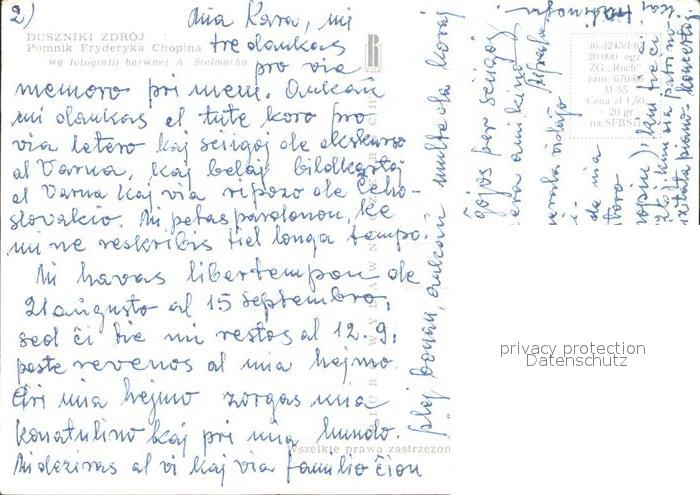 2)
Mia Kara, mi
tre dankas
pro via
memoro pri mem. Ankaŭ
mi dankas el tute koro pro
via letero kaj sciigoj de ekskurso
al Varna, kaj belaj bildkartoj
el Varna kaj via ripozo de Ĉeho-
slovakio. Mi petas pardonon, ke
mi ne reskribis tiel longa tempo.
Mi havas libertempon de
21 augusto al 15 septembro,
sed ĉi tie mi restos al 12.9,
poste revenos al mia hejmo.
En mia hejmo zorgas mia
konatulino kaj pri mia hundo.
Mi deziras al vi kaj via familio ĉion
plej bonan, ankaŭ multe da koraj
DUSZNIKI ZDRÓJ
Pomnik Fryderyka Chopina
wg fotografii barwnej A. Stelmacha
R
BIURO WYDAWNICZE RUCH
Wszelkie prawa zastrzeżon
36-3245/I/67
20 000 egz.
ZG „Ruch"
zam. 670/66
M-55
Cena zł 1,50
+ 20 gr
na SFBS
ĝojos por sciigoj
amikino
vidaĵo
de mia
kaj
koncertoj
privacy protection
Datenschutz